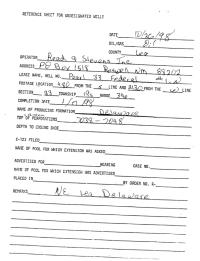 REFERENCE SHEET FOR UNDESIGNATED WELLS
DATE 10/30/98
OIL/GAS Oil
COUNTY Lea
OPERATOR Read & Stevens Inc
ADDRESS PO Box 1518 Roswell NM 88202
LEASE NAME, WELL NO. Pearl 33 Federal
FOOTAGE LOCATION FROM THE S LINE AND FROM THE W LINE
SECTION 33 TOWNSHIP 19s RANGE 34e
COMPLETION DATE
NAME OF PRODUCING FORMATION Delaware
TOP OF PERFORATIONS
DEPTH TO CASING SHOE
C-123 FILED
NAME OF POOL FOR WHICH EXTENSION WAS ASKED
ADVERTISED FOR HEARING CASE NO.
NAME OF POOL FOR WHICH EXTENSION WAS ADVERTISED
PLACED IN BY ORDER NO. R-
REMARKS NE Lea Delaware